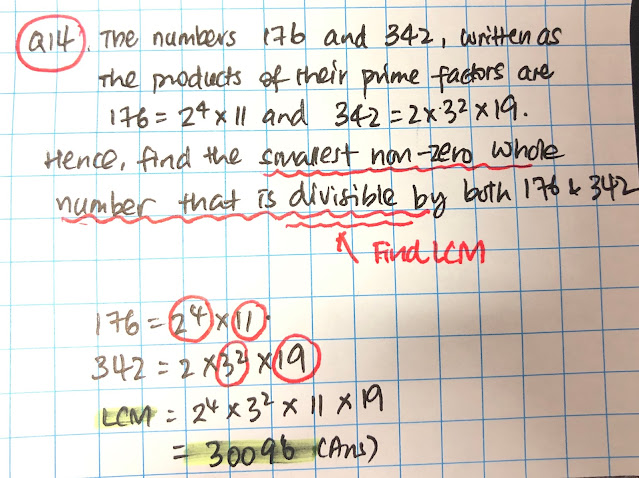 Q14). The numbers 176 and 342, written as
the products of their prime factors are
176 = 2⁴ × 11 and 342 = 2 × 3² × 19.
Hence, find the smallest non-zero whole
number that is divisible by both 176 & 342
Find LCM
176 = 2⁴ × 11.
342 = 2 × 3² × 19
LCM = 2⁴ × 3² × 11 × 19
= 30096 (Ans)